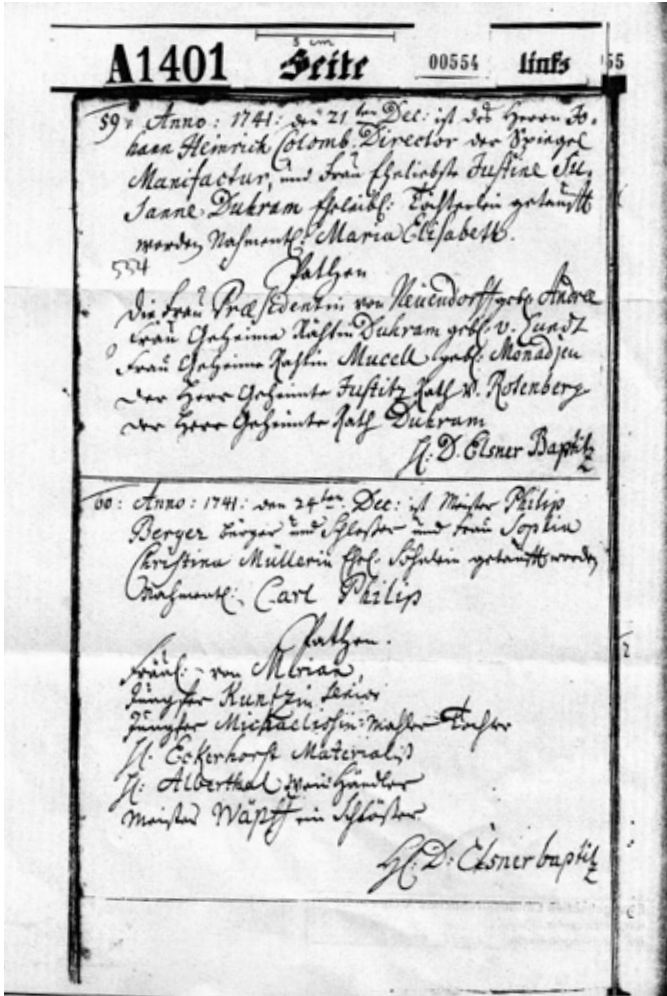 5 cm
A1401 Seite 00554 links 55
59: Anno: 1741: den 21ten Dec: ist des Herrn Jo-
hann Heinrich Colomb. Director der Spiegel
Manifactur, und Frau Eheliebste Justine Su-
sanne Duhram Eheleibl: Töchterlein getaufft
worden Nahmentl: Maria Elisabeth.
554
Pathen
Die Frau Præsidentin von Neuendorff geb: Andræ
Frau Geheimte Räthin Duhram gebh: v.
Frau Geheimte Räthin Mucell geb:
Der Herr Geheimte Justitz Rath v. Rosenberg
der Herr Geheimte Rath Duhram
H: D. Elsner Baptiz
60: Anno: 1741: den 24ten Dec: ist Meister Philip
Berger bürger und Schlosser und Frau Sophia
Christina Müllerin Ehel. Söhnlein getaufft worden
Nahmentl: Carl Philip
Pathen.
Fräul: von
Jungfer
Jungfer Michaelissin Mahler Tochter
H: Eckerhorst Materialist
H: Alberthal Wein Händler
Meister ein Schlösser
H: D: Elsner baptiz